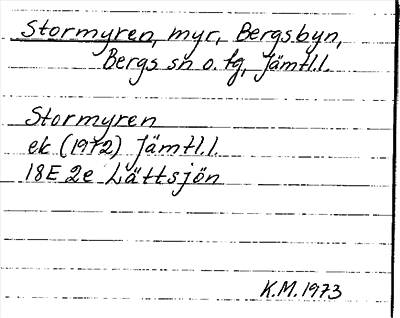 Stormyren, myr, Bergsbyn,
Bergs sn o. tg, Jämtl.l.
Stormyren
ek (1972) Jämtl.l.
18E 2e Lättsjön
K.M. 1973